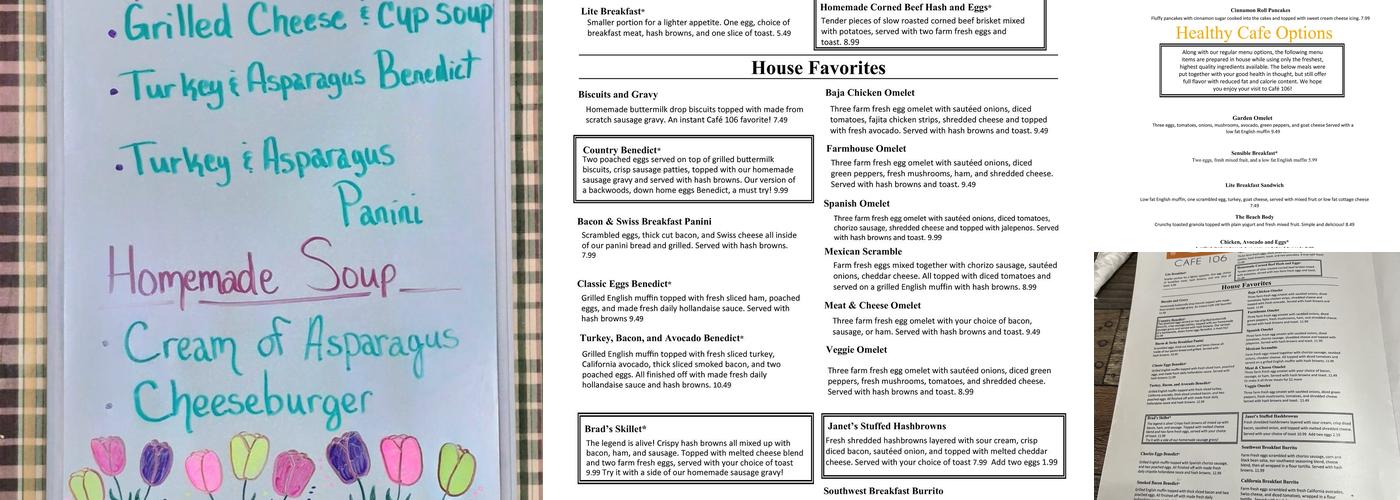 Grilled Cheese & Cup Soup
Turkey & Asparagus Benedict
Turkey & Asparagus
Panini
Homemade Soup
Cream of Asparagus
Cheeseburger
Lite Breakfast*
Smaller portion for a lighter appetite. One egg, choice of
breakfast meat, hash browns, and one slice of toast. 5.49
Homemade Corned Beef Hash and Eggs*
Tender pieces of slow roasted corned beef brisket mixed
with potatoes, served with two farm fresh eggs and
toast. 8.99
House Favorites
Biscuits and Gravy
Homemade buttermilk drop biscuits topped with made from
scratch sausage gravy. An instant Café 106 favorite! 7.49
Country Benedict*
Two poached eggs served on top of grilled buttermilk
biscuits, crisp sausage patties, topped with our homemade
sausage gravy and served with hash browns. Our version of
a backwoods, down home eggs Benedict, a must try! 9.99
Bacon & Swiss Breakfast Panini
Scrambled eggs, thick cut bacon, and Swiss cheese all inside
of our panini bread and grilled. Served with hash browns.
7.99
Classic Eggs Benedict*
Grilled English muffin topped with fresh sliced ham, poached
eggs, and made fresh daily hollandaise sauce. Served with
hash browns 9.49
Turkey, Bacon, and Avocado Benedict*
Grilled English muffin topped with fresh sliced turkey,
California avocado, thick sliced smoked bacon, and two
poached eggs. All finished off with made fresh daily
hollandaise sauce and hash browns. 10.49
Brad's Skillet*
The legend is alive! Crispy hash browns all mixed up with
bacon, ham, and sausage. Topped with melted cheese blend
and two farm fresh eggs, served with your choice of toast
9.99 Try it with a side of our homemade sausage gravy!
Baja Chicken Omelet
Three farm fresh egg omelet with sautéed onions, diced
tomatoes, fajita chicken strips, shredded cheese and topped
with fresh avocado. Served with hash browns and toast. 9.49
Farmhouse Omelet
Three farm fresh egg omelet with sautéed onions, diced
green peppers, fresh mushrooms, ham, and shredded cheese.
Served with hash browns and toast. 9.49
Spanish Omelet
Three farm fresh egg omelet with sautéed onions, diced tomatoes,
chorizo sausage, shredded cheese and topped with jalepenos. Served
with hash browns and toast. 9.99
Mexican Scramble
Farm fresh eggs mixed together with chorizo sausage, sautéed
onions, cheddar cheese. All topped with diced tomatoes and
served on a grilled English muffin with hash browns. 8.99
Meat & Cheese Omelet
Three farm fresh egg omelet with your choice of bacon,
sausage, or ham. Served with hash browns and toast. 9.49
Veggie Omelet
Three farm fresh egg omelet with sautéed onions, diced green
peppers, fresh mushrooms, tomatoes, and shredded cheese.
Served with hash browns and toast. 8.99
Janet's Stuffed Hashbrowns
Fresh shredded hashbrowns layered with sour cream, crisp
diced bacon, sautéed onion, and topped with melted cheddar
cheese. Served with your choice of toast 7.99 Add two eggs 1.99
Southwest Breakfast Burrito
Cinnamon Roll Pancakes
Fluffy pancakes with cinnamon sugar cooked into the cakes and topped with sweet cream cheese icing. 7.99
Healthy Cafe Options
Along with our regular menu options, the following menu
items are prepared in house while using only the freshest,
highest quality ingredients available. The below meals were
put together with your good health in thought, but still offer
full flavor with reduced fat and calorie content. We hope
you enjoy your visit to Café 106!
Garden Omelet
Three eggs, tomatoes, onions, mushrooms, avocado, green peppers, and goat cheese Served with a
low fat English muffin 9.49
Sensible Breakfast*
Two eggs, fresh mixed fruit, and a low fat English muffin 5.99
Lite Breakfast Sandwich
Low fat English muffin, one scrambled egg, turkey, goat cheese, served with mixed fruit or low fat cottage cheese
7.49
The Beach Body
Crunchy toasted granola topped with plain yogurt and fresh mixed fruit. Simple and delicious! 8.49
Chicken, Avocado and Eggs*
CAFE 106
House Favorites
Baja Chicken Omelet
Farmhouse Omelet
Spanish Omelet
Mexican Scramble
Meat & Cheese Omelet
Veggie Omelet
Brad's Skillet*
Janet's Stuffed Hashbrowns
Southwest Breakfast Burrito
Chorizo Eggs Benedict*
Smoked Bacon Benedict
California Breakfast Burrito